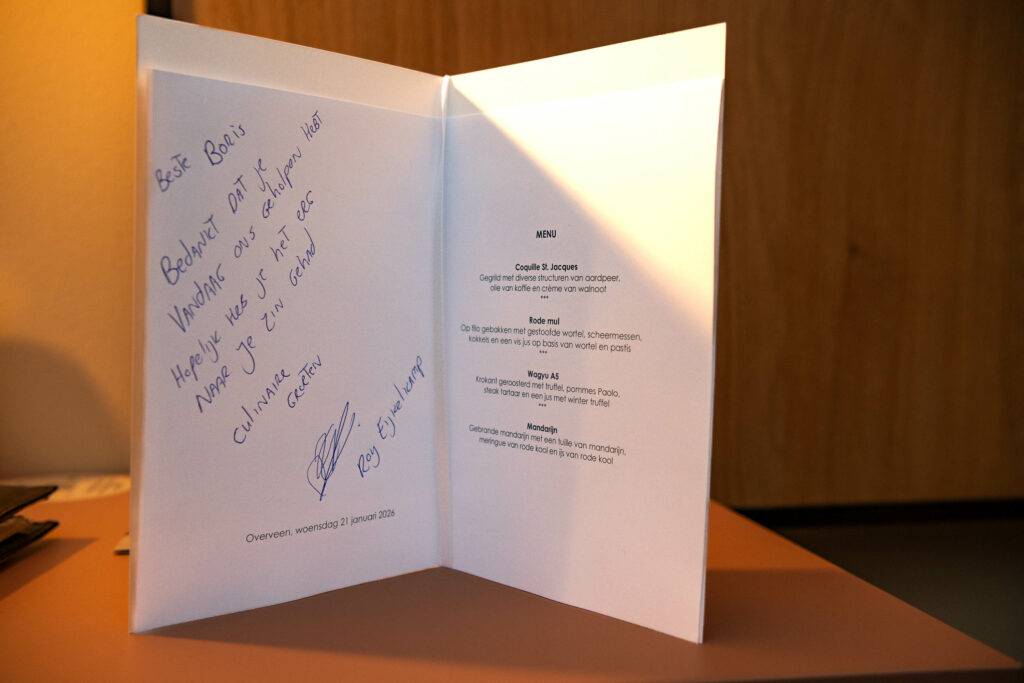 Beste Boris
Bedankt dat je
vandaag ons geholpen hebt
Hopelijk heb je het erg
naar je zin gehad
Culinaire
groeten
Roy Eijkelkamp
Overveen, woensdag 21 januari 2026
MENU
Coquille St. Jacques
Gegrild met diverse structuren van aardpeer,
olie van koffie en crème van walnoot
***
Rode mul
Op filo gebakken met gestoofde wortel, scheermessen,
kokkels en een vis jus op basis van wortel en pastis
***
Wagyu A5
Krokant geroosterd met truffel, pommes Paolo,
steak tartaar en een jus met winter truffel
***
Mandarijn
Gebrande mandarijn met een tuille van mandarijn,
meringue van rode kool en ijs van rode kool